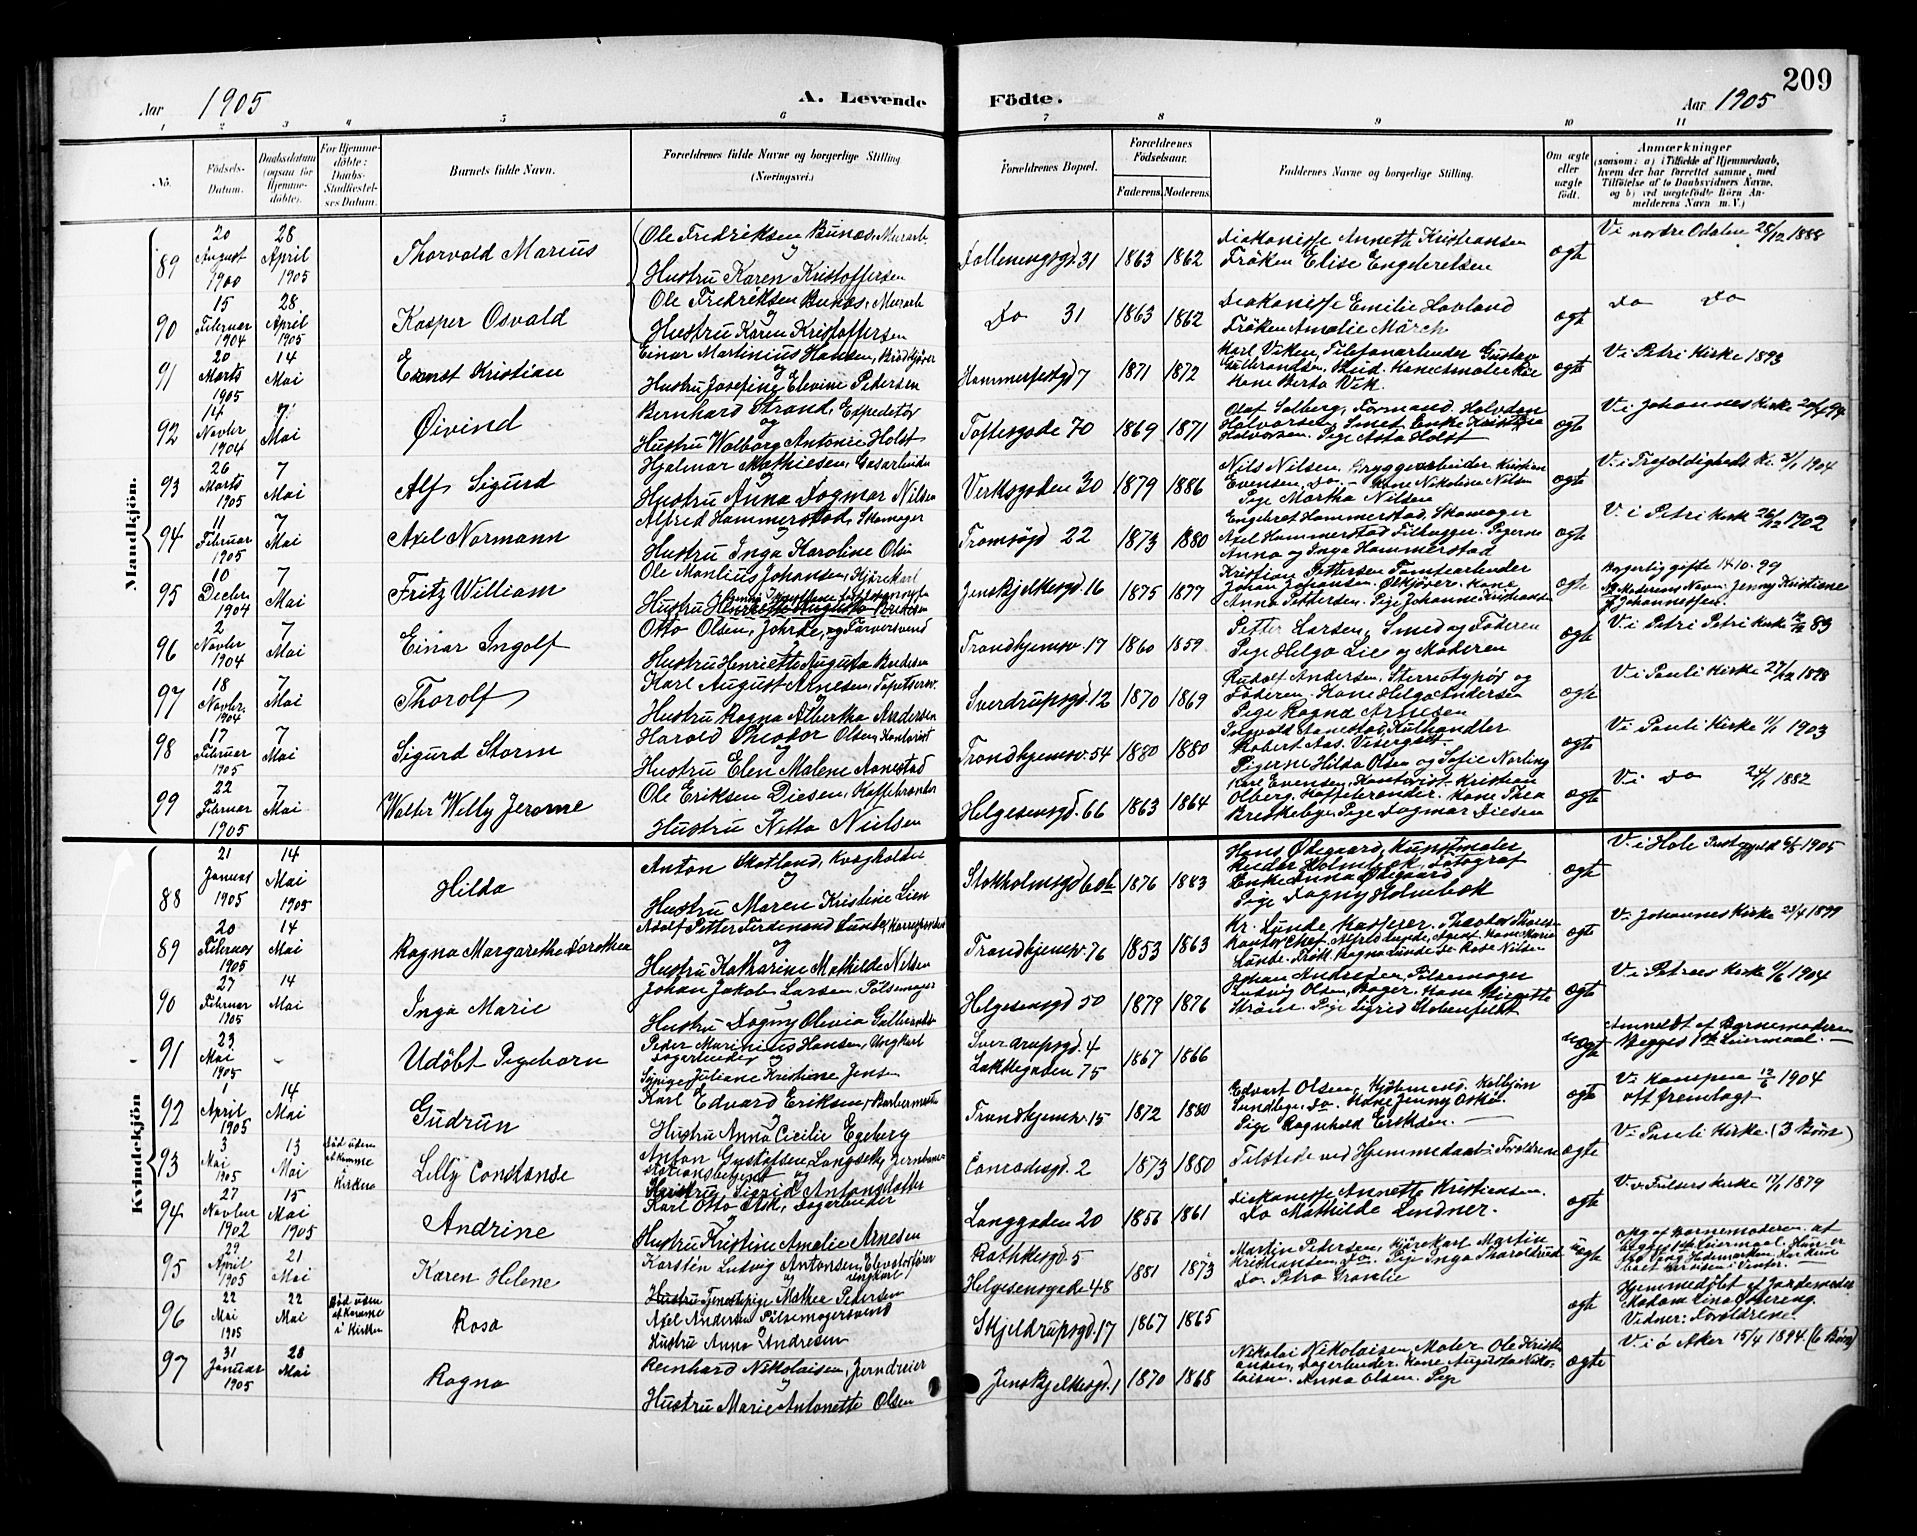 209
Aar 1905 A. Levende Födte. Aar 1905
1 2 3 4 5 6 7 8 9 10 11
No.
Födsels-
Datum.
Daabsdatum
(ogsaa for
Hjemme-
döbte).
For Hjemme-
döbte:
Daabs-
Stadfæstel-
ses Datum.
Barnets fulde Navn.
Forældrenes fulde Navne og borgerlige Stilling
(Næringsvei.)
Forældrenes Bopæl.
Forældrenes
Födselsaar.
Faderens. Moderens.
Faddernes Navne og borgerlige Stilling.
Om ægte
eller
uægte
födt.
Anmærkninger
(saasom: a) i Tilfælde af Hjemmedaab,
hvem der har forrettet samme, med
Tilföielse af to Daabsvidners Navne,
og b) ved uægtefödte Börn An-
melderens Navn m. V.)
Mandkjön.
89
20
August
1900
28
April
1905
Thorvald Marius
Ole Fredriksen Bunæs, Murarb
og
Hustru Karen Kristoffersen
31 1863 1862
Diakonisse Annette Kristiansen
Frøken Elise Engebretsen
ægte
V. i nordre Odalen 28/12 1888
90
15
Februar
1904
28
April
1905
Kasper Osvald
Ole Fredriksen Bunæs, Murarb
og
Hustru Karen Kristoffersen
Do 31 1863 1862
Diakonisse Emilie Havland
Frøken Amalie Mårch
ægte
Do Do
91
20
Marts
1905
14
Mai
Ernst Kristian
Einar Martinius Hansen, Brødkjører
og
Hustru Josefine Elevine Pedersen
Hammerfestgd 7 1871 1872
Karl Viken, Telefonarbeider Gustav
Gulbrandsen, Bud. Kone
Kone Berta Vik.
ægte
V i Petri Kirke 1893
92
14
Novbr
1904
7
Mai
Øivind
Bernhard Strand, Expeditør
og
Hustru Walborg Antonie Holst
Toftesgade 70 1869 1871
Olaf Solberg, Formand. Halvdan
Halvorsen, Smed, Enke Kristine
Halvorsen. Pige Asta Holst
ægte
V. i Johannes Kirke 94
93
26
Marts
1905
7
Mai
Alf Sigurd
Hjalmar Mathiesen, Gasarbeider
og
Hustru Anna Dagmar Nilsen
Verksgaden 30 1879 1886
Nils Nilsen, Bryggearbeider. Kristian
Evensen, Do. - Kone Nikoline Nilsen
Pige Martha Nilsen
ægte
V. i Trefoldigheds K. 1904
94
11
Februar
1905
7
Mai
Axel Normann
Alfred Hammerstad, Skomager
Hustru Inga Karoline Olsen
Tromsøgd 22 1873 1880
Engebret Hammerstad, Skomager
Axel Hammerstad Filhugger. Pigerne
Anna og Inga Hammerstad
ægte
V. i Petri Kirk 26/12 1902
95
10
Decbr
1904
7
Mai
Fritz William
Ole Manlius Johansen, Kjørekarl
Hustru
Jens Bjelkesgd. 16 1875 1877
Kristian Pettersen Tomtearbeider
Johan Johansen. Ølkjører. Kone
Anna Pettersen. Pige Johanne Kristiansen
ægte
Borgerlig gifte 14 10. 99
Moderens Navn: Jenny Kristiane
Johannessen.
96
2
Novbr
1904
7
Mai
Einar Ingolf
Otto Olsen, Farversvend
Hustru Henriette Augusta Bredesen
Trondhjemsv. 17 1860 1859
Petter Larsen, Smed og Faderen
Pige Helga Lie og Moderen
ægte
V. i Petri Petri Kirke 83
97
18
Novbr.
1904
7
Mai
Thorolf
Karl August Arnesen, Tapetserer.
Hustru Ragna Albertha Andersen
Sverdrupsgd. 12 1870 1869
Rudolf Andersen, Stereotypør og
Faderen. Kone Helga Andersen
Pige Ragna Arnesen
ægte
V. i Pauli Kirke 27/12 1898
98
17
Februar
1905
7
Mai
Sigurd Storm
Harald Theodor Olsen, Kontorist
og
Hustru Elen Malene Aanestad
Trondhjemsv. 54 1880 1880
Aanestad, Kulhandler
Robert Aas. Visergut.
Pigerne Hilda Olsen og Sofie Norling
ægte
V. i Pauli Kirke 1903
99
22
Februar
1905
7
Mai
Walter Welly Jerome
Ole Eriksen Diesen, Kaffebrænder
Hustru Netta Nielsen
Helgesensgd. 66 1863 1864
Karl Evensen, Kontorist. Kristian
Olberg. Kaffebrænder. Kone Thea
Breskeby. Pige Dagmar Diesen
ægte
V. i Do 24/1 1882
Kvindekjön
88
21
Januar
1905
14
Mai
1905
Hilda
Anton Skotland, Kvægholder
og
Hustru Maren Kristine Lien
Stokholmsgd 60 1876 1883
Hans Ødegaard, Kunstmaler
Holmbok, Fotograf
Enke Anna Ødegaard
Pige Dagny Holmebok
ægte
V. i Hole Prestegjeld 1905
89
20
Februar
1905
14
Mai
Ragna Margarethe Dorothea
Adolf Petter Ferdinand Lunde,
og
Hustru Katharine Mathilde Nilsen
Trondhjemsv. 76 1853 1863
Kr. Lunde, Kasserer.
Kontorchef, Alfred Lunde, Agent. Kone Marie
Lunde. Frøk. Ragna Lunde Rose Nilsen
ægte
V. Johannes Kirke 23/4 1899
90
27
Februar
1905
14
Mai
Inga Marie
Johan Jakob Larsen, Pølsemager
Hustru Dagny Olivia
Helgesensgd 50 1879 1876
Johan Andresen, Pølsemager
Ludvig Olsen, Bager. Kone
Pige Sigrid Stobenfeldt
ægte
V. i Petrus Kirke 1904
91
23
Mai
1905
-
Udøbt Pigebarn
Peder Marinius Hansen, Ungkarl
Dagarbeider og
Sypige Juliane Kristine Jensen
Sverdrupsgd. 4
Lakkegaden 75
1867 1866
uægte
Anmeldt af Barnemoderen
Begges 1ste Leiermaal. —
92
1
April
1905
14
Mai
Gudrun
Karl Edvard Eriksen, Barbermester
Hustru Anna Cecilie Egeberg
Trondhjemsv. 15 1872 1880
Edvart Olsen, Kjøbmand. Kolbjørn
Sundbye, Do. Kone Jenny
Pige Ragnhild Eriksen. —
ægte
V. i Kampen 12/6 1904
off fremtagt
93
3
Mai
1905
13
Mai
Død uden
at komme
i
Kirken
Lilly Constanse
Anton Gustafsen Langseth, Jernbane-
stationsbetjent og
Hustru, Sigrid Antonsdatter
Conradesgd. 2 1873 1880
Tilstede ved Hjemmedaab: Forældrene
ægte
V. i Pauli Kirke (3 Børn)
94
27
Novbr
1902
15
Mai
1905
Andrine
Karl Otto Ask, Dagarbeider
Hustru Kristine Amalie Arnesen
Langgaden 20 1856 1861
Diakonisse Annette Kristiansen.
Do Mathilde Lindner.
ægte
V. v Frelsers Kirke 1879
95
29
April
1905
21
Mai
Karen Helene
Karsten Ludvig Antonsen, Elevatorfører
og ungkarl
Tjenestepige Mathea Pedersen
Rathkesgd 5
Helgesensgade 48
1881 1873
Martin Pedersen, Kjørekarl Martin
Kristiansen, Do. Pige Inga Tharaldrud
Do. Petra Granlie
uægte
Opg af Barnemoderen, at
begges 1ste Leiermaal. Hun er
96
22
Mai
1905
22
Mai
Død uden
at komme
i Kirken
Rosa
Axel Andersen Pølsemagersvend
Hustru Anna Andresen
Skjeldrupsgd. 17 1867 1865
ægte
Hjemmedøbt af Jordemoder
Madam Lina Østereng.
Vidner: Forældrene
97
31
Januar
1905
28
Mai
Ragna
Reinhard Nikolaisen, Jerndreier
og
Hustru Marie Antonette Olsen
Jens Bjelkesgd. 1 1870 1868
Nikolai Nikolaisen, Maler Ole Kristi-
ansen, Dagarbeider. Kone Augusta Niko-
laisen. Anna Olsen. Pige
ægte
V. i ø Aker 15/4 1894. (6 Børn)